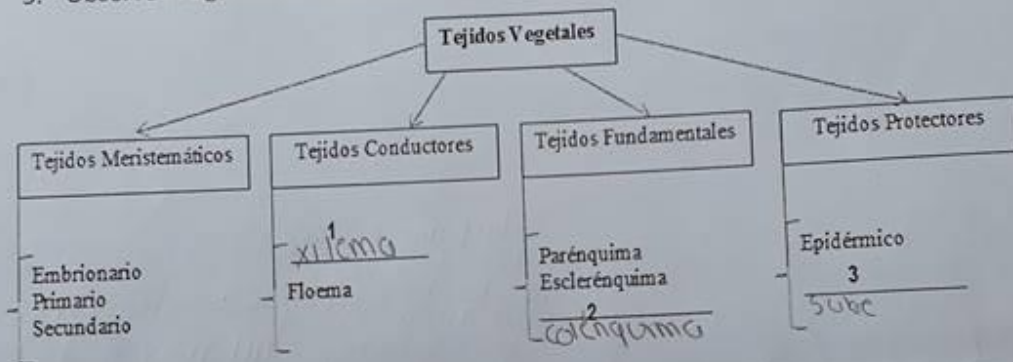 Tejidos Vegetales
Tejidos Meristemáticos
Embrionario
Primario
Secundario
Tejidos Conductores
1
xilema
Floema
Tejidos Fundamentales
Parénquima
Esclerénquima
2
colénquima
Tejidos Protectores
Epidérmico
3